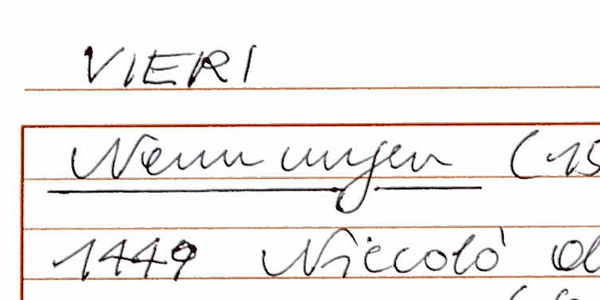 VIERI
Nennungen (15
1449 Niccolò d